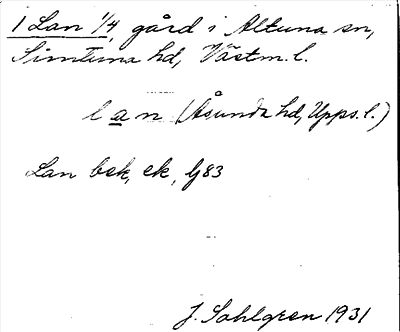 1 Lan 1/4, gård i Altuna sn,
Simtuna hd, Västm. l.
lan (Åsunda hd, Upps. l.)
Lan bek, ek, lj 83
J. Sahlgren 1931